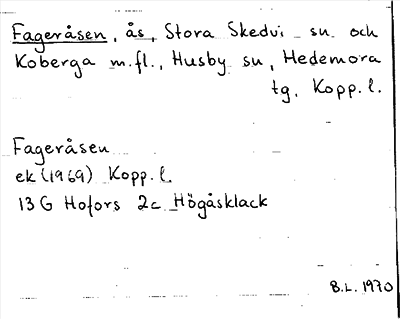 Fageråsen, ås, Stora Skedvi sn. och
Koberga m.fl., Husby sn, Hedemora
tg, Kopp.l.
Fageråsen
ek (1969) Kopp.l.
13 G Hofors 2c Högåsklack
B.L. 1970